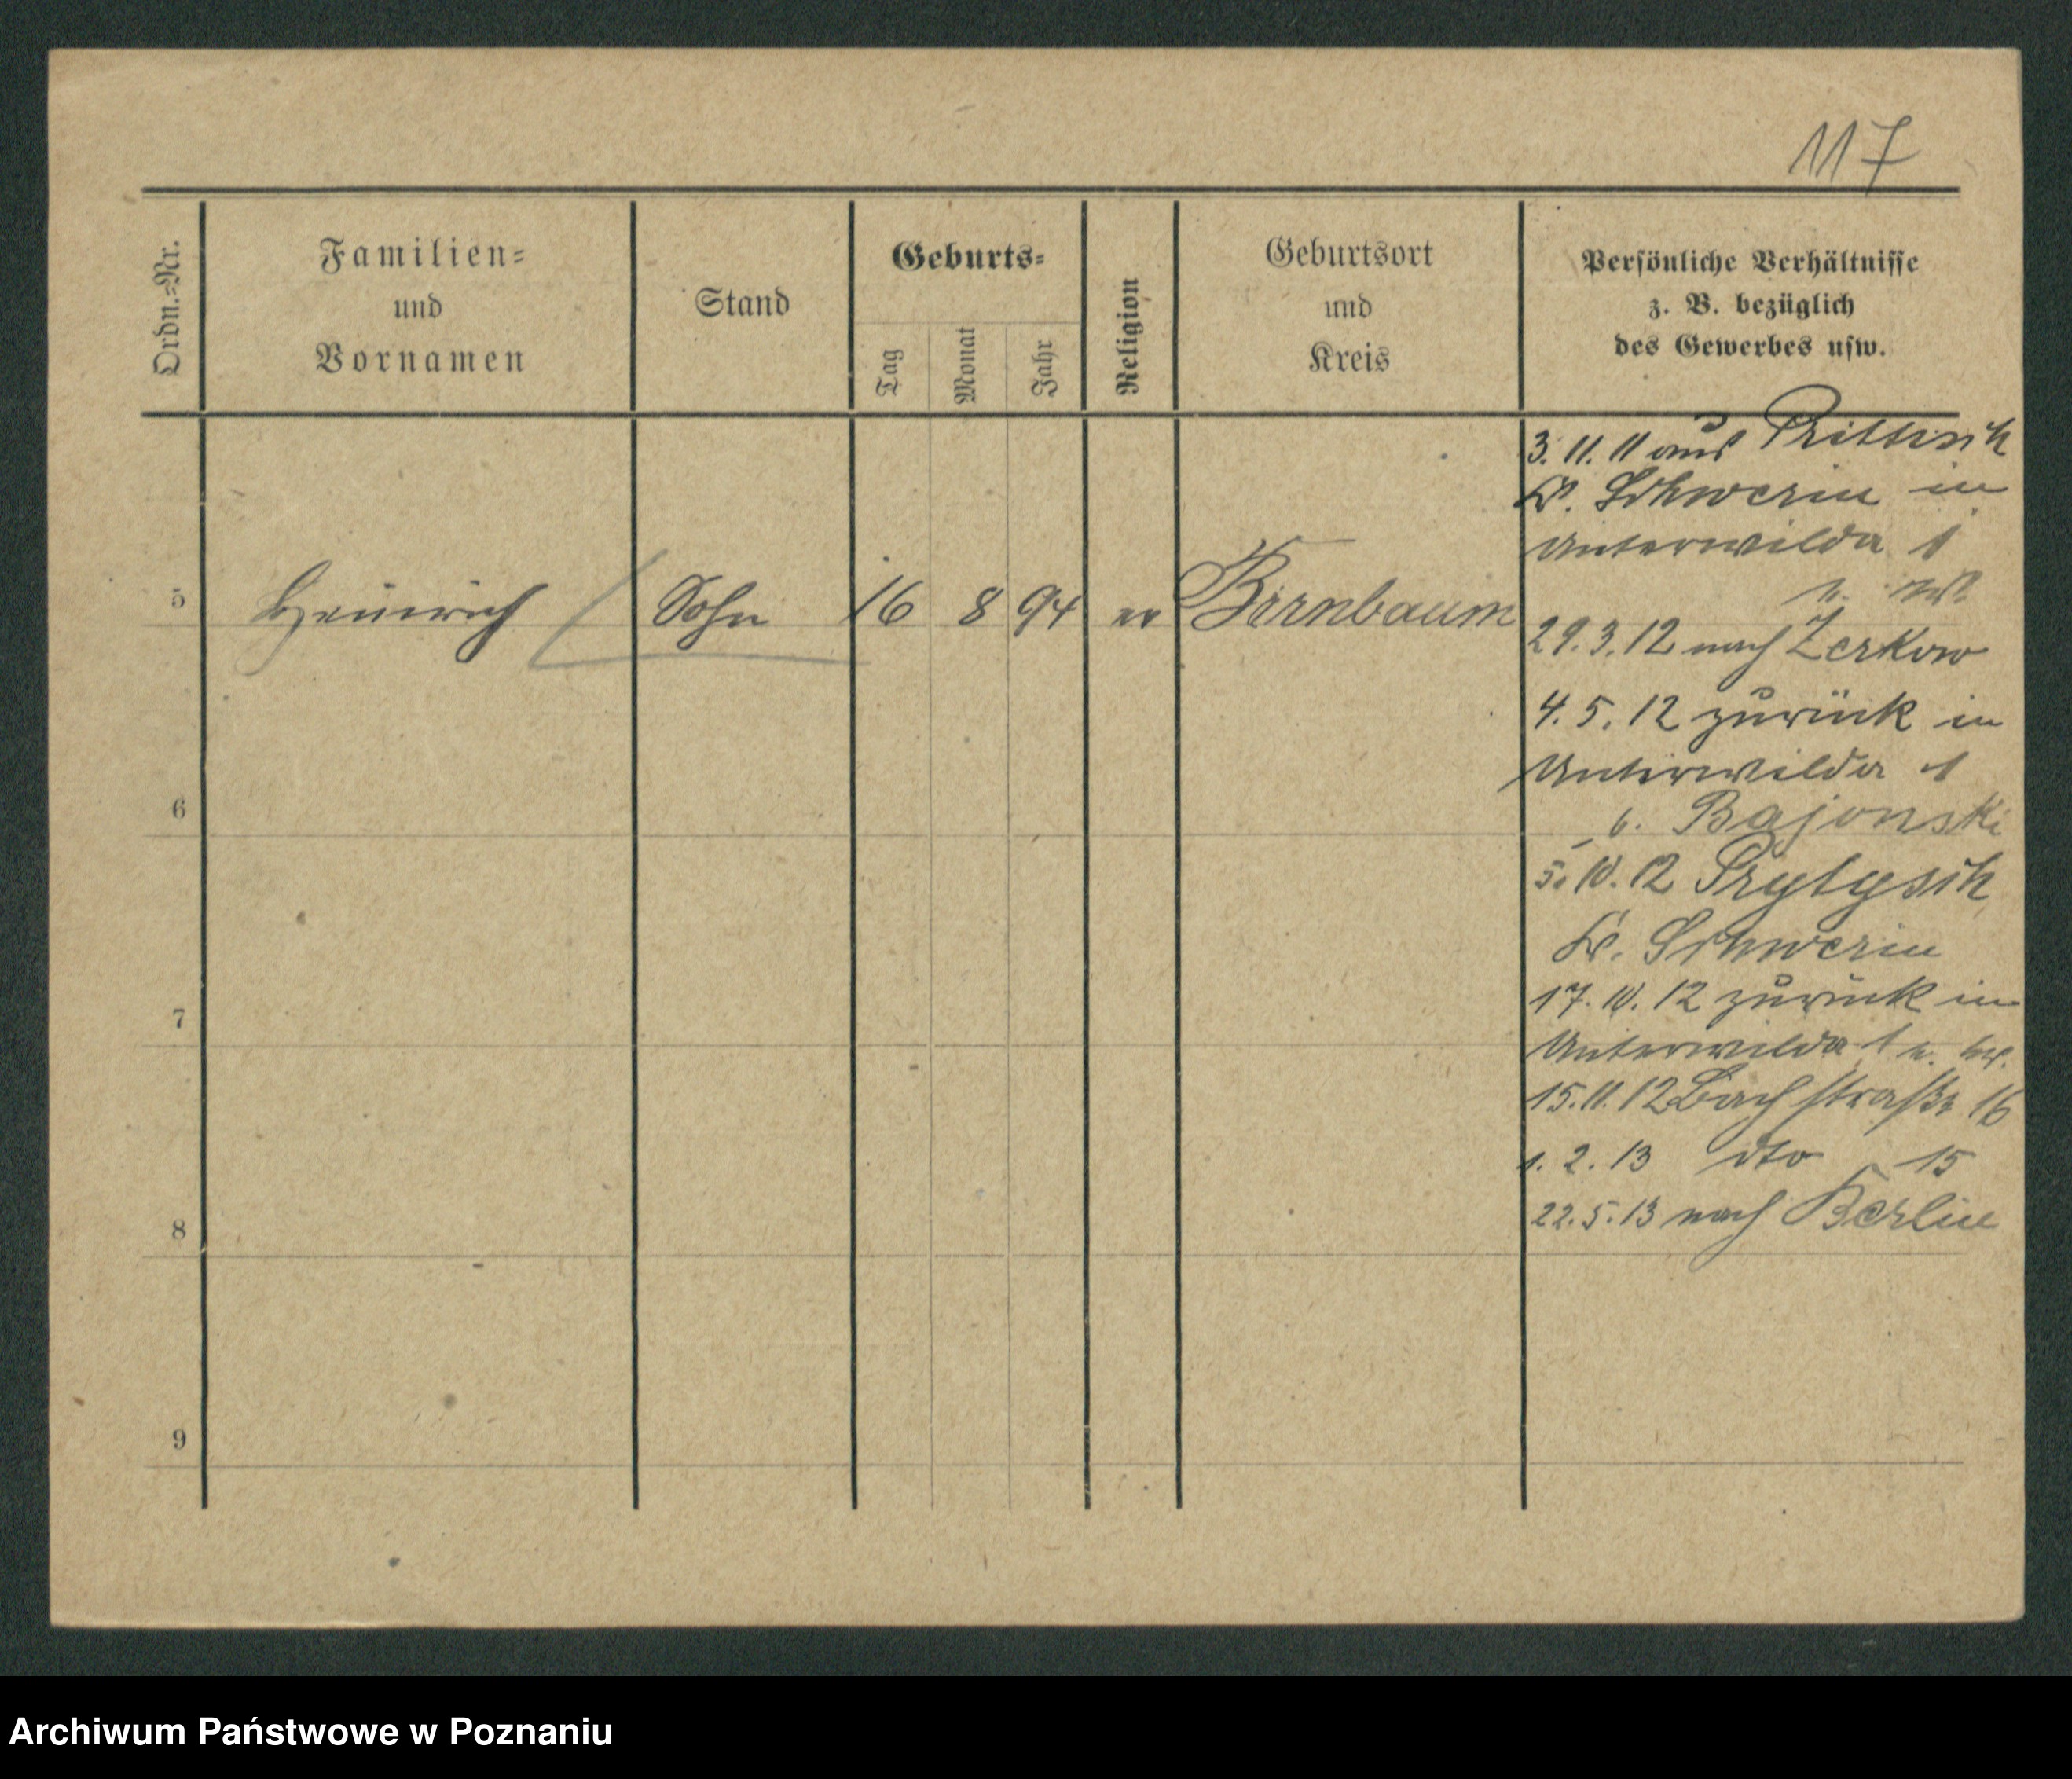 117
Ordn.=Nr.
Familien=
und
Vornamen
Stand
Geburts=
Tag
Monat
Jahr
Religion
Geburtsort
und
Kreis
Persönliche Verhältnisse
z. B. bezüglich
des Gewerbes usw.
5 Heinrich Sohn 16 8 94 ev Birnbaum
3. 11. 11 aus Prittisch
Kr. Schwerin in
Unterwilda 1
29. 3. 12 nach Zerkow
4. 5. 12 zurück in
Unterwilda 1
b. Bajonski
5. 10. 12 Prytysch
Kr. Schwerin
17. 10. 12 zurück in
Unterwilda 1
15. 11. 12 Bachstraße 16
1. 2. 13 dto 15
22. 5. 13 nach Berlin
6
7
8
9
Archiwum Państwowe w Poznaniu